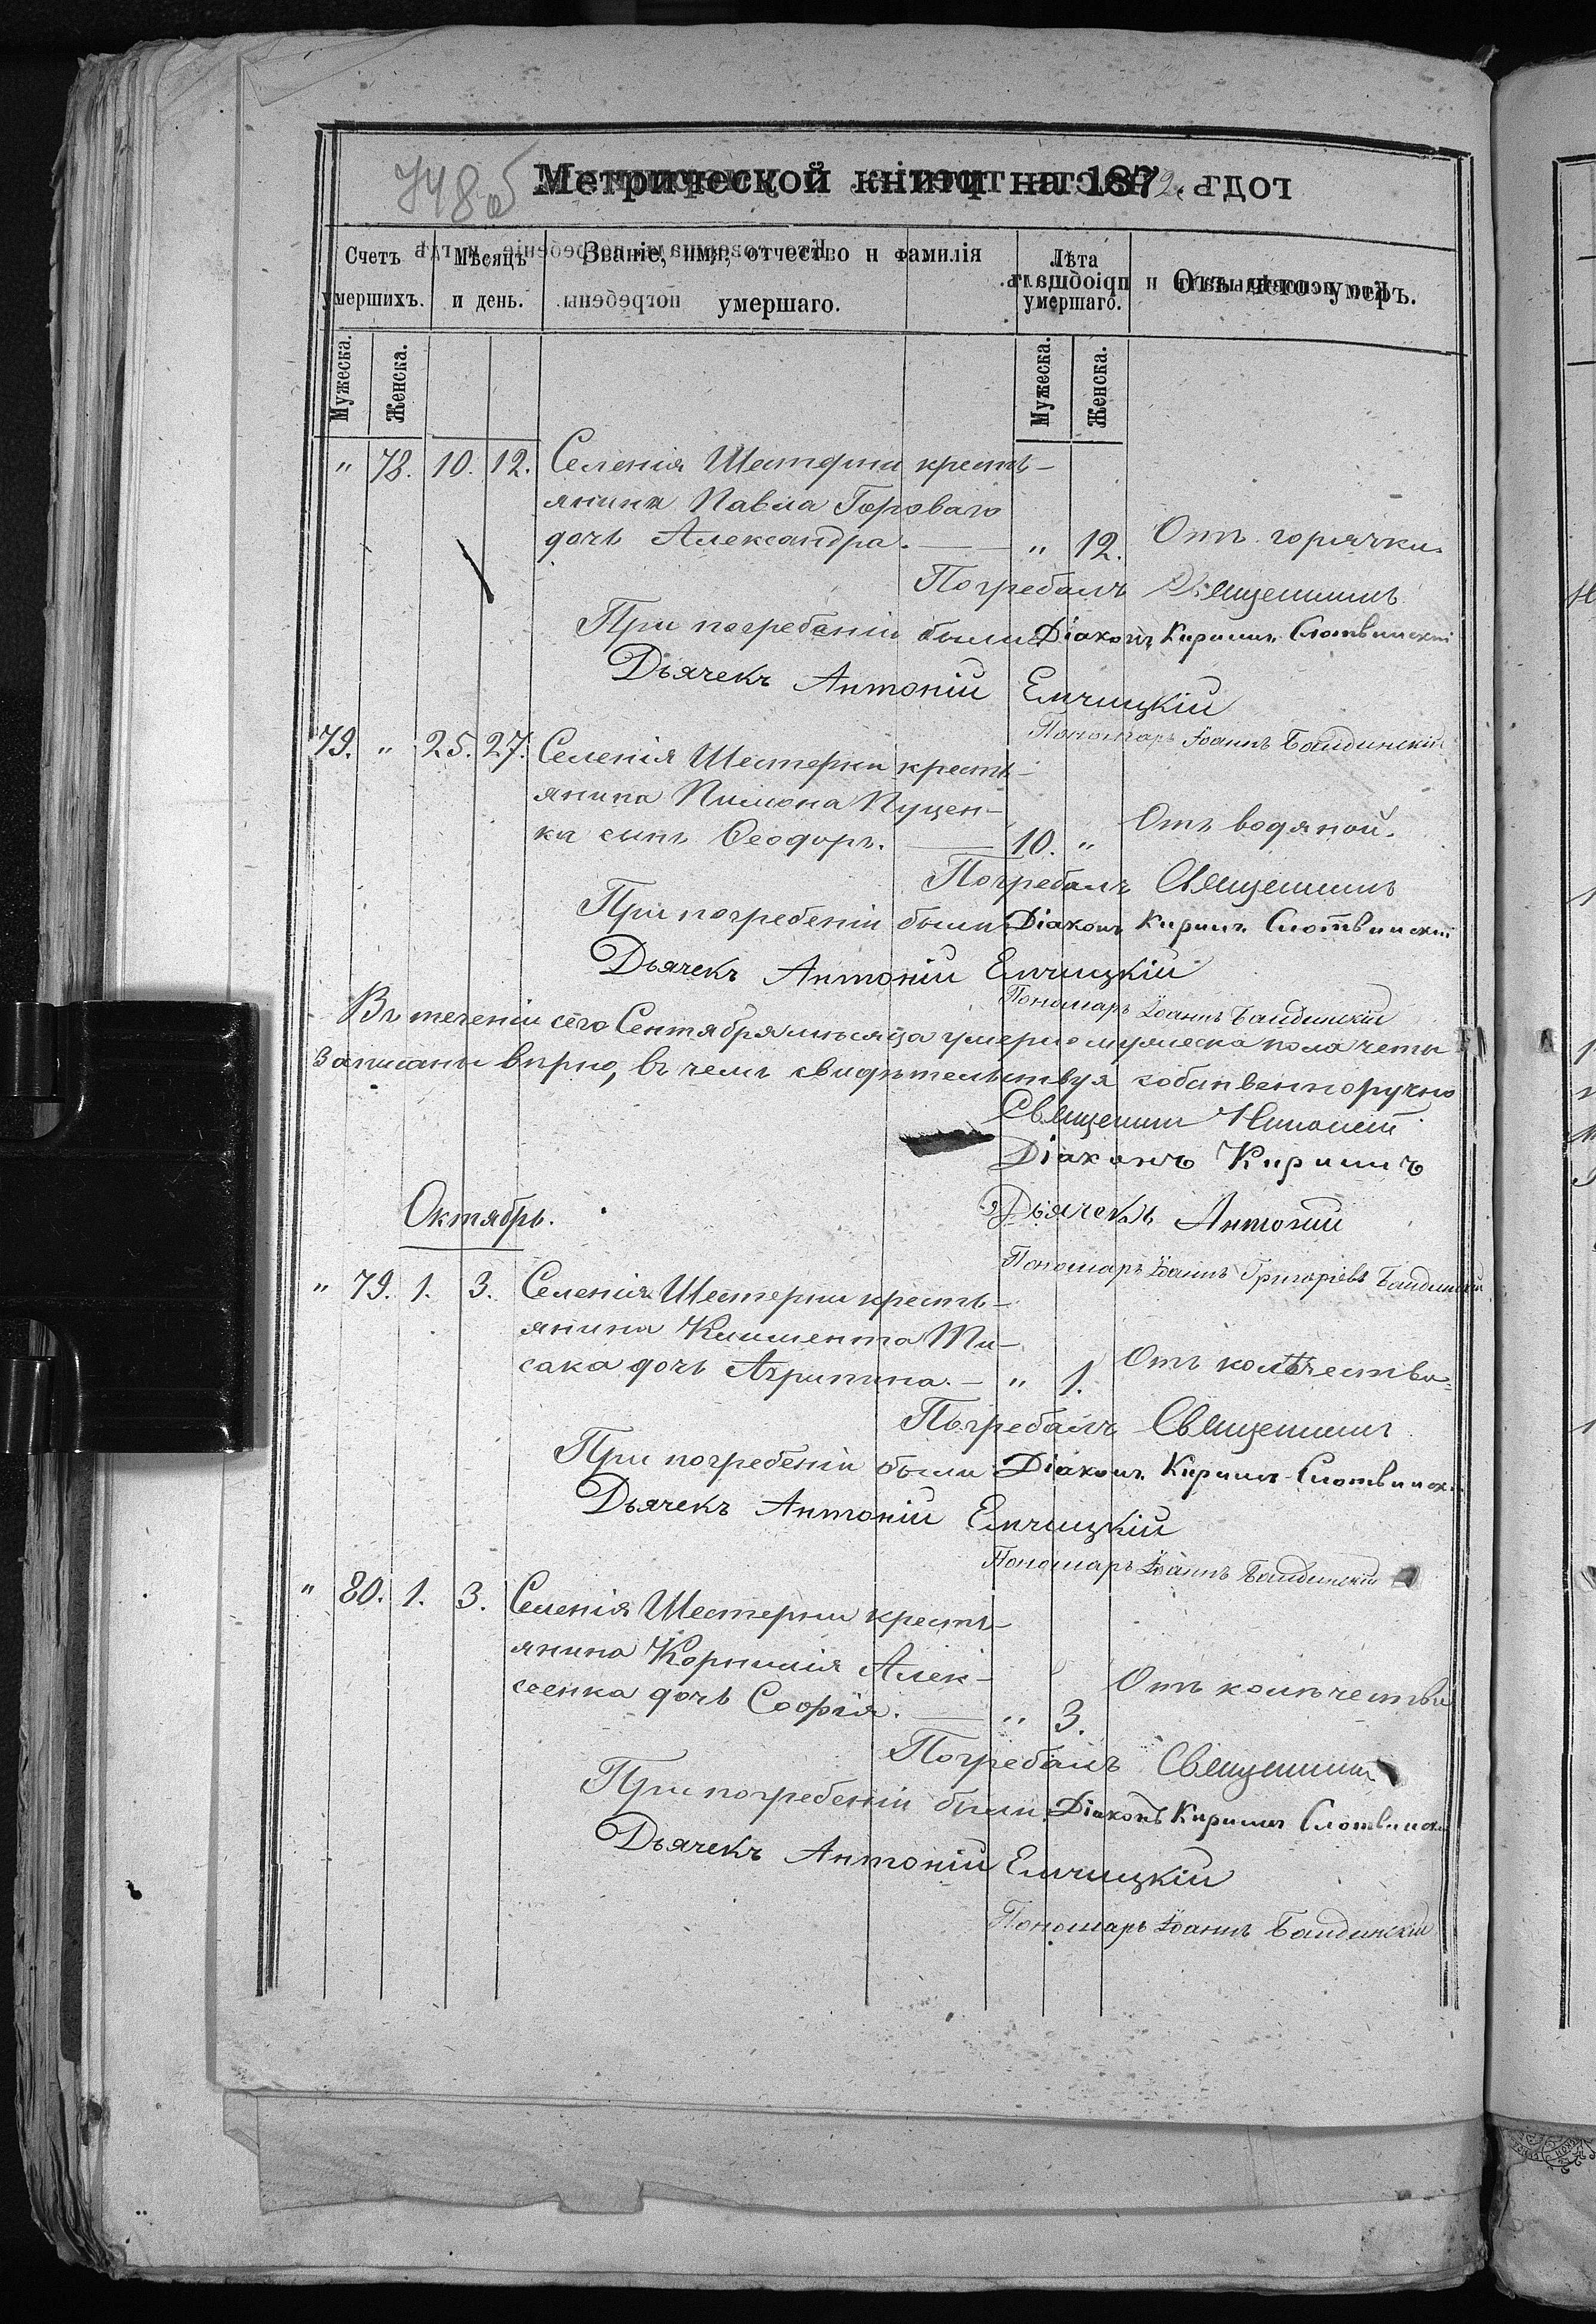 748 об
Метрической книги на 1872
Счетъ умершихъ.
Мѣсяцъ и день.
Званіе, имя, отчество и фамилія умершаго.
Лѣта умершаго.
Отъ чего умеръ.
Мужеска. Женска. Мужеска. Женска.
" 78. 10. 12. Селенія Шестерни кресть-
янина Павла Гороваго
дочь Александра. — " 12. Отъ горячки.
Погребалъ Священникъ
При погребеніи были Діаконъ Кириллъ Слотвинскій
Дьячекъ Антоній Емчицкій
Пономарь Іоаннъ Балдинскій
79. " 25. 27. Селенія Шестерни кресть-
янина Пимона Пуцен-
ка сынъ Ѳеодоръ. — 10. " Отъ водяной.
Погребалъ Священникъ
При погребеніи были Діаконъ Кириллъ Слотвинскій
Дьячекъ Антоній Емчицкій
Пономарь Іоаннъ Балдинскій
Въ теченіи сего Сентября мѣсяца умерло мужеска пола четы
Записаны вѣрно, въ чемъ свидѣтельствуя собственноручно
Священникъ
Діаконъ Кириллъ
Дьячекъ Антоній
Пономарь Іоаннъ Григоріевъ Балдинскій
Октябрь.
" 79. 1. 3. Селенія Шестерни кресть-
янина Климента Ми-
сака дочь Агрипина. — " 1. Отъ колѣчества
Погребалъ Священникъ
При погребеніи были Діаконъ Кириллъ Слотвинск
Дьячекъ Антоній Емчицкій
Пономарь Іоаннъ Балдинскій
" 80. 1. 3. Селенія Шестерни кресть-
янина Корнилія Алек-
сеенка дочь Софія. — " 3. Отъ колѣчества
Погребалъ Священникъ
При погребеніи были Діаконъ Кириллъ Слотвинск
Дьячекъ Антоній Емчицкій
Пономарь Іоаннъ Балдинскій